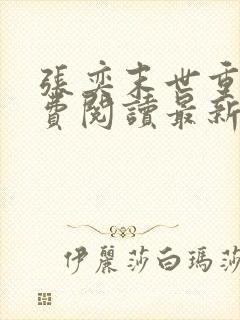 張奕末世重
費閱讀最新
伊麗莎白瑪莎